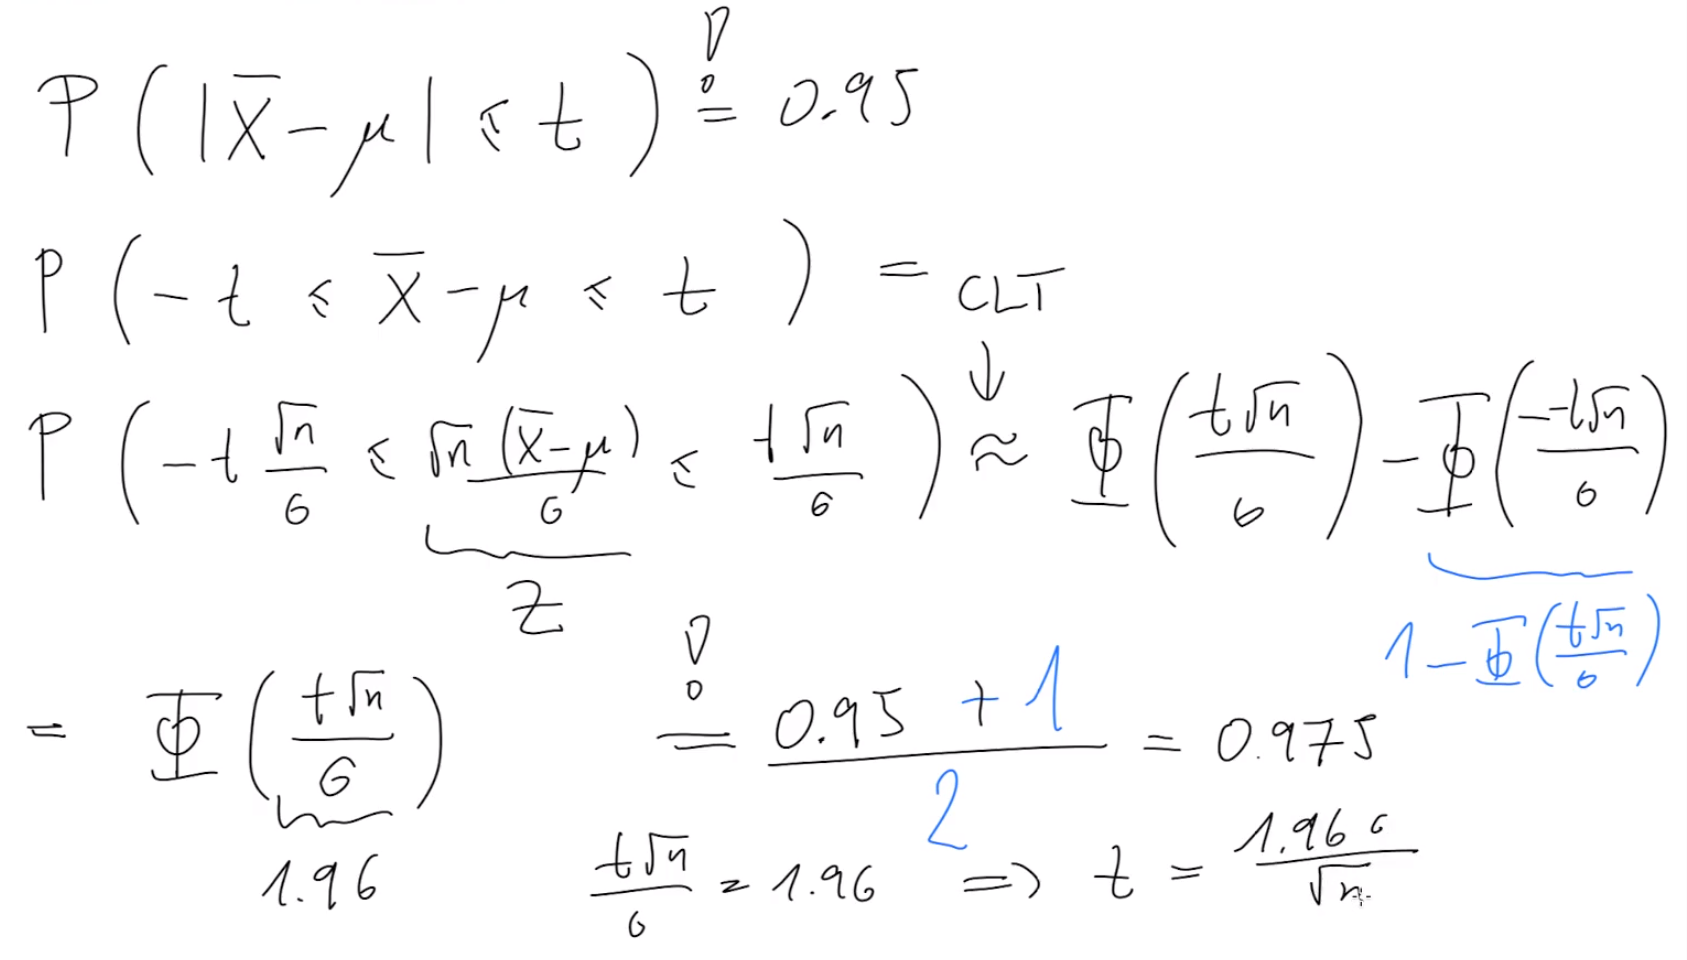 P ( |X̄ - μ| ≤ t ) =! 0.95
P ( - t ≤ X̄ - μ ≤ t ) = CLT
↓
P ( - t √n/σ ≤ √n (X̄ - μ)/σ ≤ t √n/σ ) ≈ Φ ( t√n/σ ) - Φ ( -t√n/σ )
Z
1 - Φ ( t√n/σ )
= Φ ( t√n/σ ) =! (0.95 + 1)/2 = 0.975
1.96
t√n/σ = 1.96 ⇒ t = 1.96 σ/√n